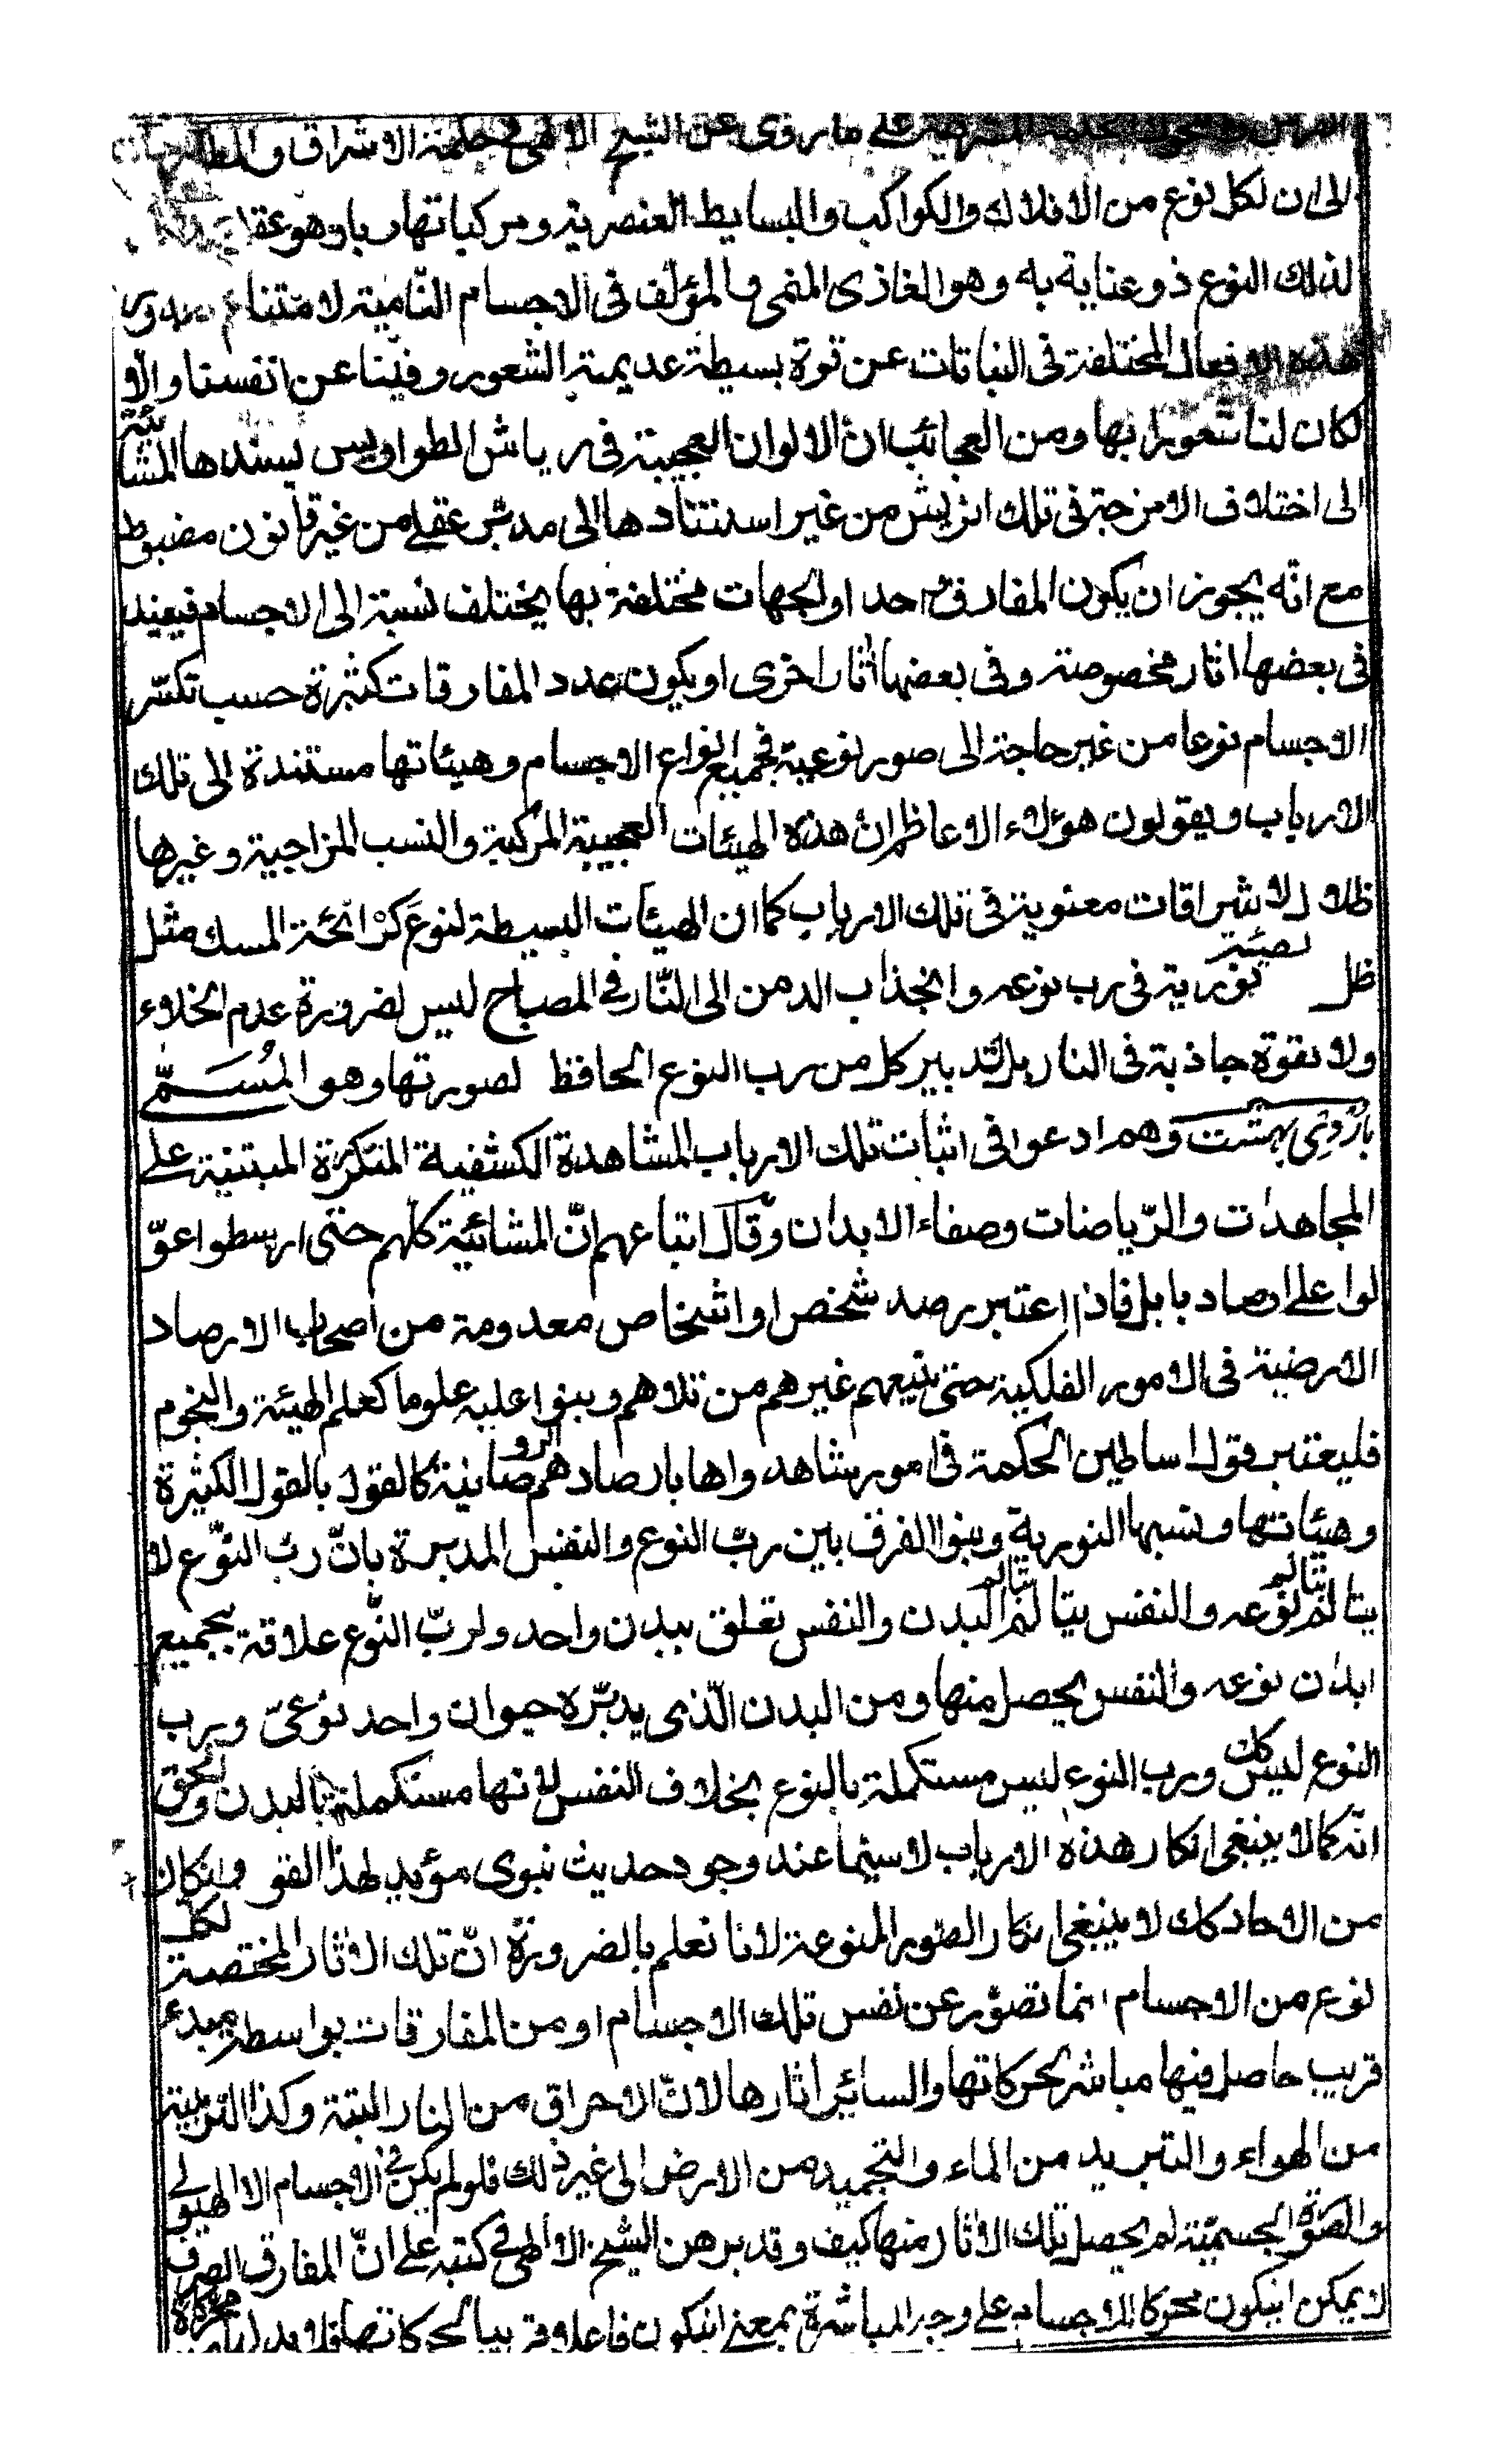 على ما روى عن الشيخ الالهى فى حكمة الاشراق و
الى ان لكل نوع من الافلاك والكواكب والبسايط العنصرية ومركباتها ربا وهو
لذلك النوع ذو عناية به وهو الغاذى المنمى والمؤلف فى الاجسام النّامية لامتناع صدور
هذه الافعال المختلفة فى النباتات عن قوة بسيطة عديمة الشعور وفينا عن انفسنا والّا
لكان لنا شعور بها ومن العجائب انّ الالوان العجيبة فى رياش الطواويس يسندها المشائيّة
الى اختلاف الامزجة فى تلك الريش من غير استنادها الى مدبّر عقلى من غير قانون مضبوط
مع انّه يجوز ان يكون المفارق احد اولجهات مختلفة بها يختلف نسبة الى الاجسام فيفيد
فى بعضها اثار مخصوصة وفى بعضها اثار اخرى او يكون عدد المفارقات كثيرة حسب تكسّر
الاجسام نوعا من غير حاجة الى صور نوعية فجميع انواع الاجسام وهيئاتها مستندة الى تلك
الارباب ويقولون هؤلاء الاعاظم انّ هذه الهيئات العجيبة المركبة والنسب المزاجية وغيرها
ظلال لاشراقات معنوية فى تلك الارباب كما ان الهيئات البسيطة لنوع كرائحة المسك مثل
ظل نورية فى رب نوعه وانجذاب الدمن الى النّار فى المصباح ليس لضرورة عدم الخلاء
ولا بقوة جاذبة فى النار بل لتدبير كل من رب النوع الحافظ لصورتها وهو المُسَمّى
باُرْدِى بهشت وهم ادعوا فى اثبات تلك الارباب المشاهدة الكشفية المتكررة المبتنية على
المجاهدات والرّياضات وصفاء الابدان وقال اتباعهم انّ المشائيّة كلّهم حتى ارسطو اعوّ
لوا على ارصاد بابل فاذا اعتبر رصد شخص او اشخاص معدومة من اصحاب الارصاد
الارضية فى الامور الفلكية حتى يتبعهم غيرهم من تلاهم وبنوا عليه علوما كعلم الهيئة والنجوم
فليعتبر قول اساطين الحكمة فى امور شاهدواها بارصادهم الروصانية كالقول بالقول الكثيرة
وهيئاتها ونسبها النورية وبنوا الفرق بين ربّ النوع والنفس المدبرة بانّ ربّ النوّع لا
يتالم نوعه والنفس يتالم البدن والنفس تعلق ببدن واحد ولربّ النّوع علاقة بجميع
ابدان نوعه والنفس يحصل منها ومن البدن الّذى يدبّره حيوان واحد نوعىّ ورب
النوع ليس كك ورب النوع ليس مستكملة بالنوع بخلاف النفس لانها مستكملة بالبدن والحق
انّه كما لا ينبغى انكار هذه الارباب لاسيّما عند وجود حديث نبوى مؤيد لهذا القو وانكان
من الاحاد كك لا ينبغى انكار الصّور المنوعة لانا نعلم بالضرورة انّ تلك الاثار المختصة لكل
نوع من الاجسام انما تصوّر عن نفس تلك الاجسام او من المفارقات بواسطة مبدء
قريب حاصل فيها مباشر لحركاتها والسائير اثارها لانّ الاحراق من النار البتة وكذا الترطيبة
من الهواء والتبريد من الماء والتجميد من الارض الى غير ذلك فلو لم يكن فى الاجسام الا الهيولى
والصّورة الجسميّة لم يحصل تلك الاثار منها كيف وقد برهن الشيخ الالهى فى كتبه على انّ المفارق الصرف
لا يمكن ان يكون محركا للاجسام على وجه المباشرة بمعنى ان يكون فاعلا قريبا لحركاتها